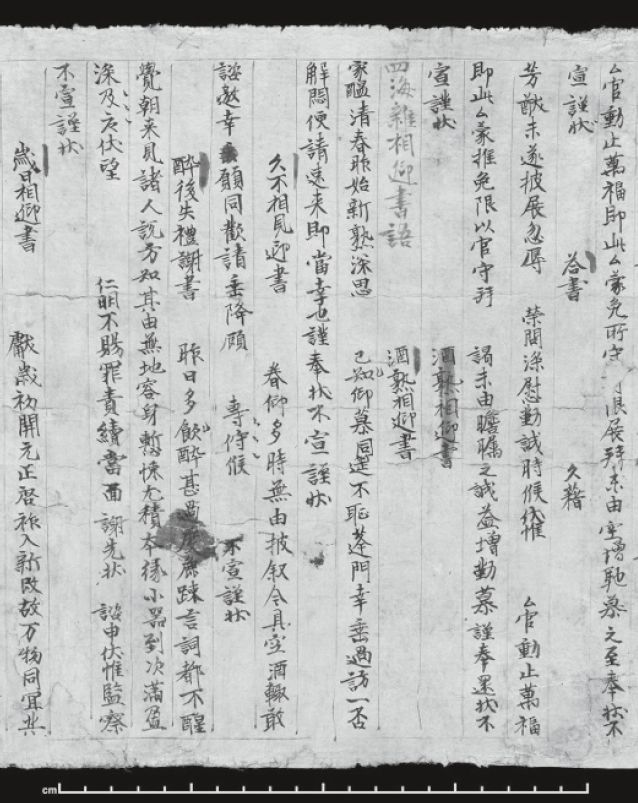 官動止萬福即此蒙免所守有限展拜未由空增馳慕之至奉狀不
宣謹狀 答書 久藉
芳猷未遂披展忽辱 榮問深慰勤誠時候伏惟 官動止萬福
即此蒙推免限以官守拜 謁未由瞻矚之誠益增勤慕謹奉還狀不
宣謹狀 酒熟相迎書
四海雜相迎書語 酒熟相迎書
家醖清春昨始新熟深思 已知仰慕同道不恥蓬門幸垂過訪一否
解悶便請速來即當幸也謹奉狀不宣謹狀
久不相見迎書 眷仰多時無由披叙今具空酒輒敢
諮邀幸願同歡請垂降顧 專佇候 不宣謹狀
醉後失禮謝書 昨日多飲醉甚過度麁踈言詞都不醒
覺朝來見諸人說方知其由無地容身慙悚尤積本緣小器到次滿盈
深及尤伏望 仁明不賜罪責續當面謝先狀 諮申伏惟監察
不宣謹狀
歲日相迎書 獻歲初開元正啓祚入新改故万物同宜共